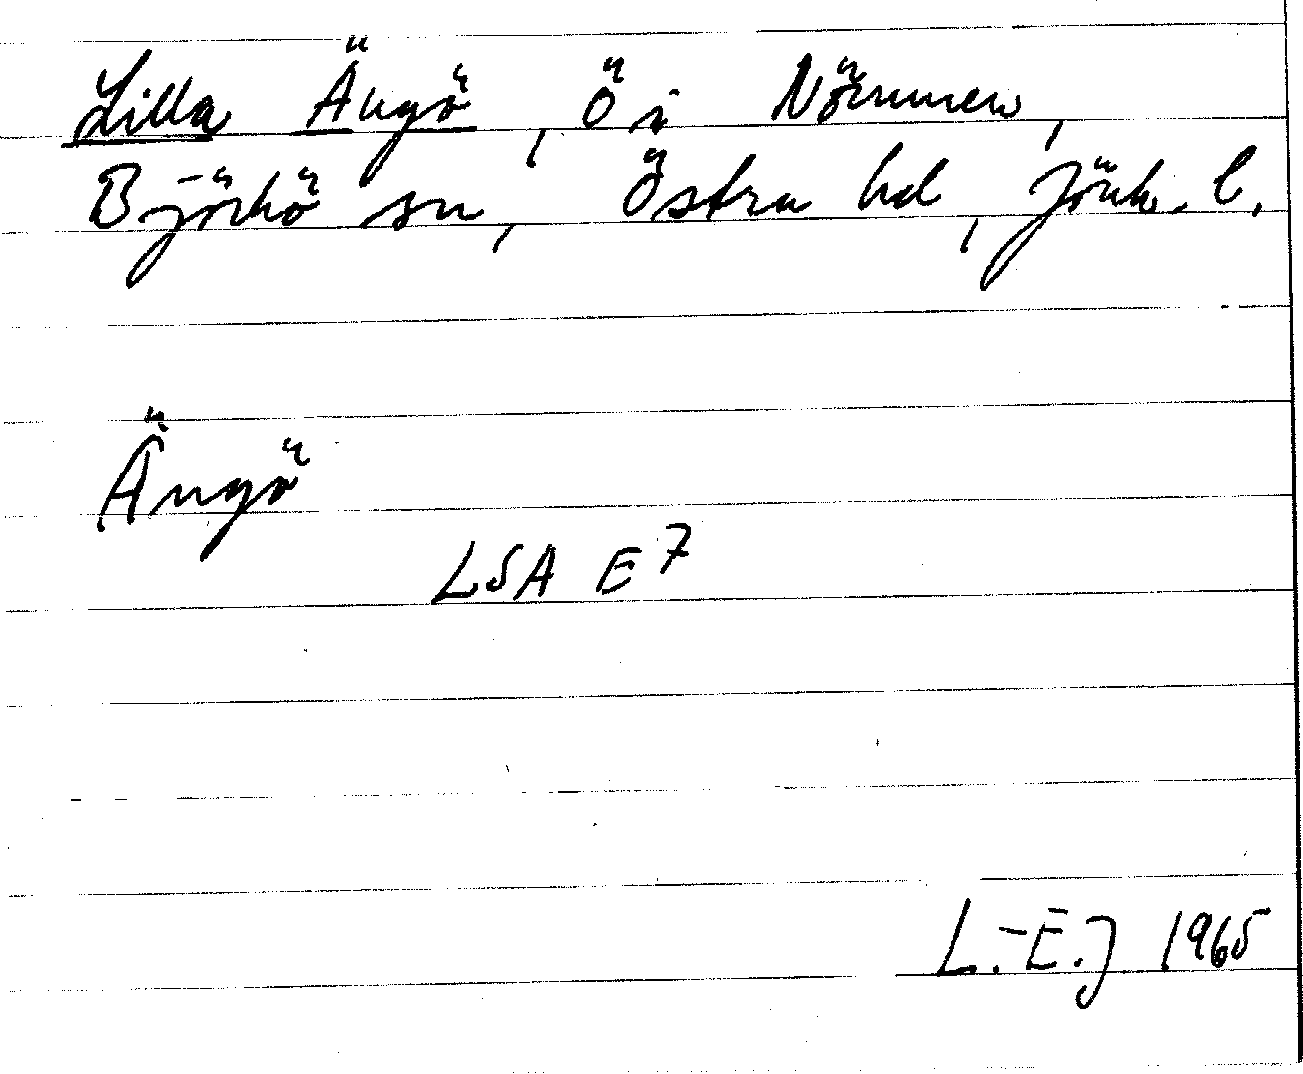 Lilla Ängö, ö i Nömmen,
Björkö sn, Östra hd, Jönk. l.
Ängö
LSA E7
L.-E.J 1965